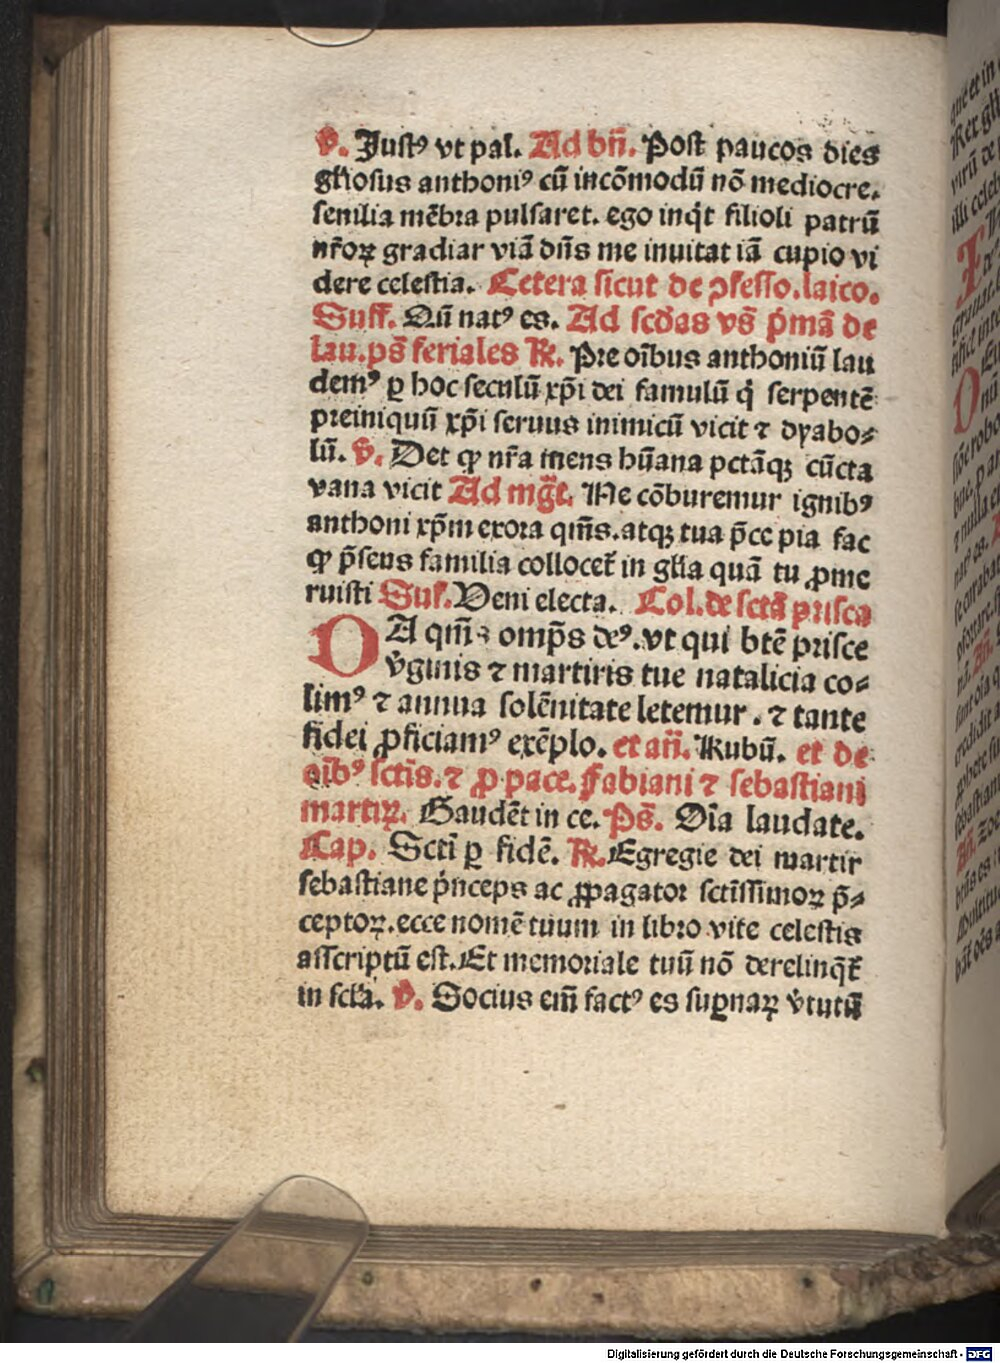 v̄. Justꝰ vt pal. Ad bn̄. Post paucos dies
gl̄iosus anthoniꝰ cū incōmodū nō mediocre.
senilia mēbra pulsaret. ego inq̇t filioli patrū
nr̄oꝝ gradiar viā dn̄s me inuitat iā cupio vi
dere celestia. Cetera sicut de ꝯfesso. laico.
Suff. Qū natꝰ es. Ad scd̄as vs̄ p̄mā de
lau. ps̄ feriales R̄. Pre oībus anthoniū lau
demꝰ ꝑ hoc seculū xp̄i dei famulū q̇ serpentē
preiniquū xp̄i seruus inimicū vicit ⁊ dyabo⸗
lū. v̄. Det ꝙ nr̄a mens hūana pctāqꝫ cūcta
vana vicit Ad mḡt. Ne cōburemur ignibꝰ
anthoni xp̄m exora qm̄s. atqꝫ tua p̄ce pia fac
ꝙ p̄sens familia collocet̄ in gl̄ia quā tu ꝓme
ruisti Suf. Veni electa. Col. de sctā prisca
DA qm̄⸗ omp̄s deꝰ. vt qui btē prisce
v̇ginis ⁊ martiris tue natalicia co⸗
limꝰ ⁊ annua solēnitate letemur. ⁊ tante
fidei ꝓficiamꝰ exēplo. et an̄. Rubū. et de
oībꝰ sctīs. ⁊ ꝓ pace. Fabiani ⁊ sebastiani
martiꝝ. Gaudēt in ce. Ps̄. Oīa laudate.
Cap. Sctī ꝑ fidē. R̄. Egregie dei martir
sebastiane ṗnceps ac ꝓpagator sctīssimoꝝ p̄⸗
ceptoꝝ. ecce nomē tuum in libro vite celestis
asscriptū est. Et memoriale tuū nō derelinq̄t
in scl̄a. v̄. Socius em̄ factꝰ es suꝑnaꝝ v̇tutū
Digitalisierung gefördert durch die Deutsche Forschungsgemeinschaft - DFG